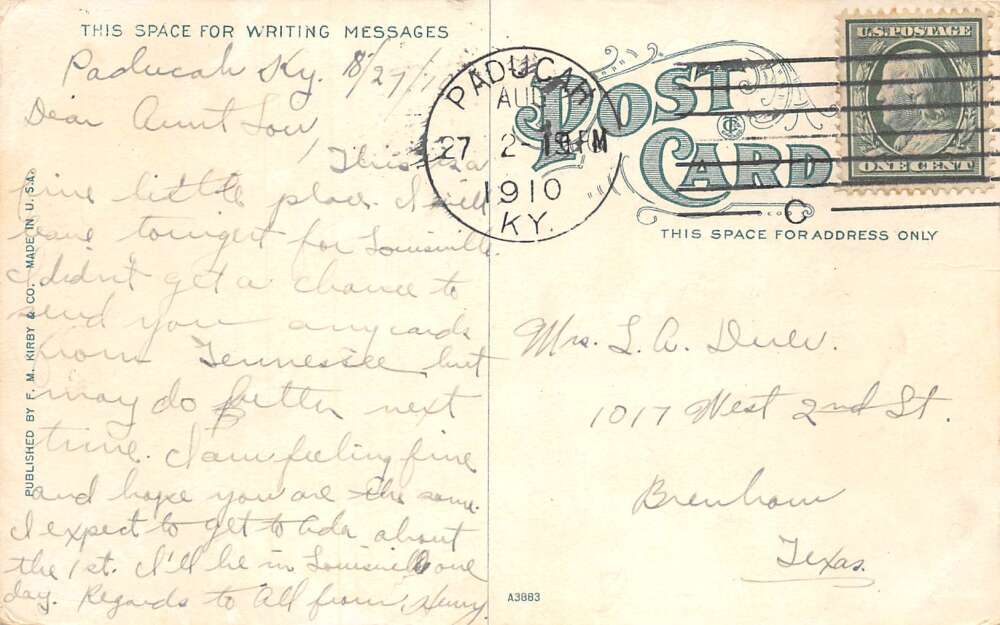 THIS SPACE FOR WRITING MESSAGES
Paducah Ky. 8/27/
Dear Aunt Lou
This is a
fine little place. I will
leave tonight for Louisville.
I didn't get a chance to
send you any cards
from Tennessee but
may do better next
time. I am feeling fine
and hope you are the same.
I expect to get to Ada about
the 1st. I'll be in Louisville one
day. Regards to all from, Henry
PUBLISHED BY F. M. KIRBY & CO. MADE IN U. S. A.
PADUCAH
AUG
27 2- PM
1910
KY.
POST
CARD
U.S. POSTAGE
ONE CENT
C
THIS SPACE FOR ADDRESS ONLY
Mrs. L. A.
1017 West 2nd St.
Brenham
Texas.
A3883